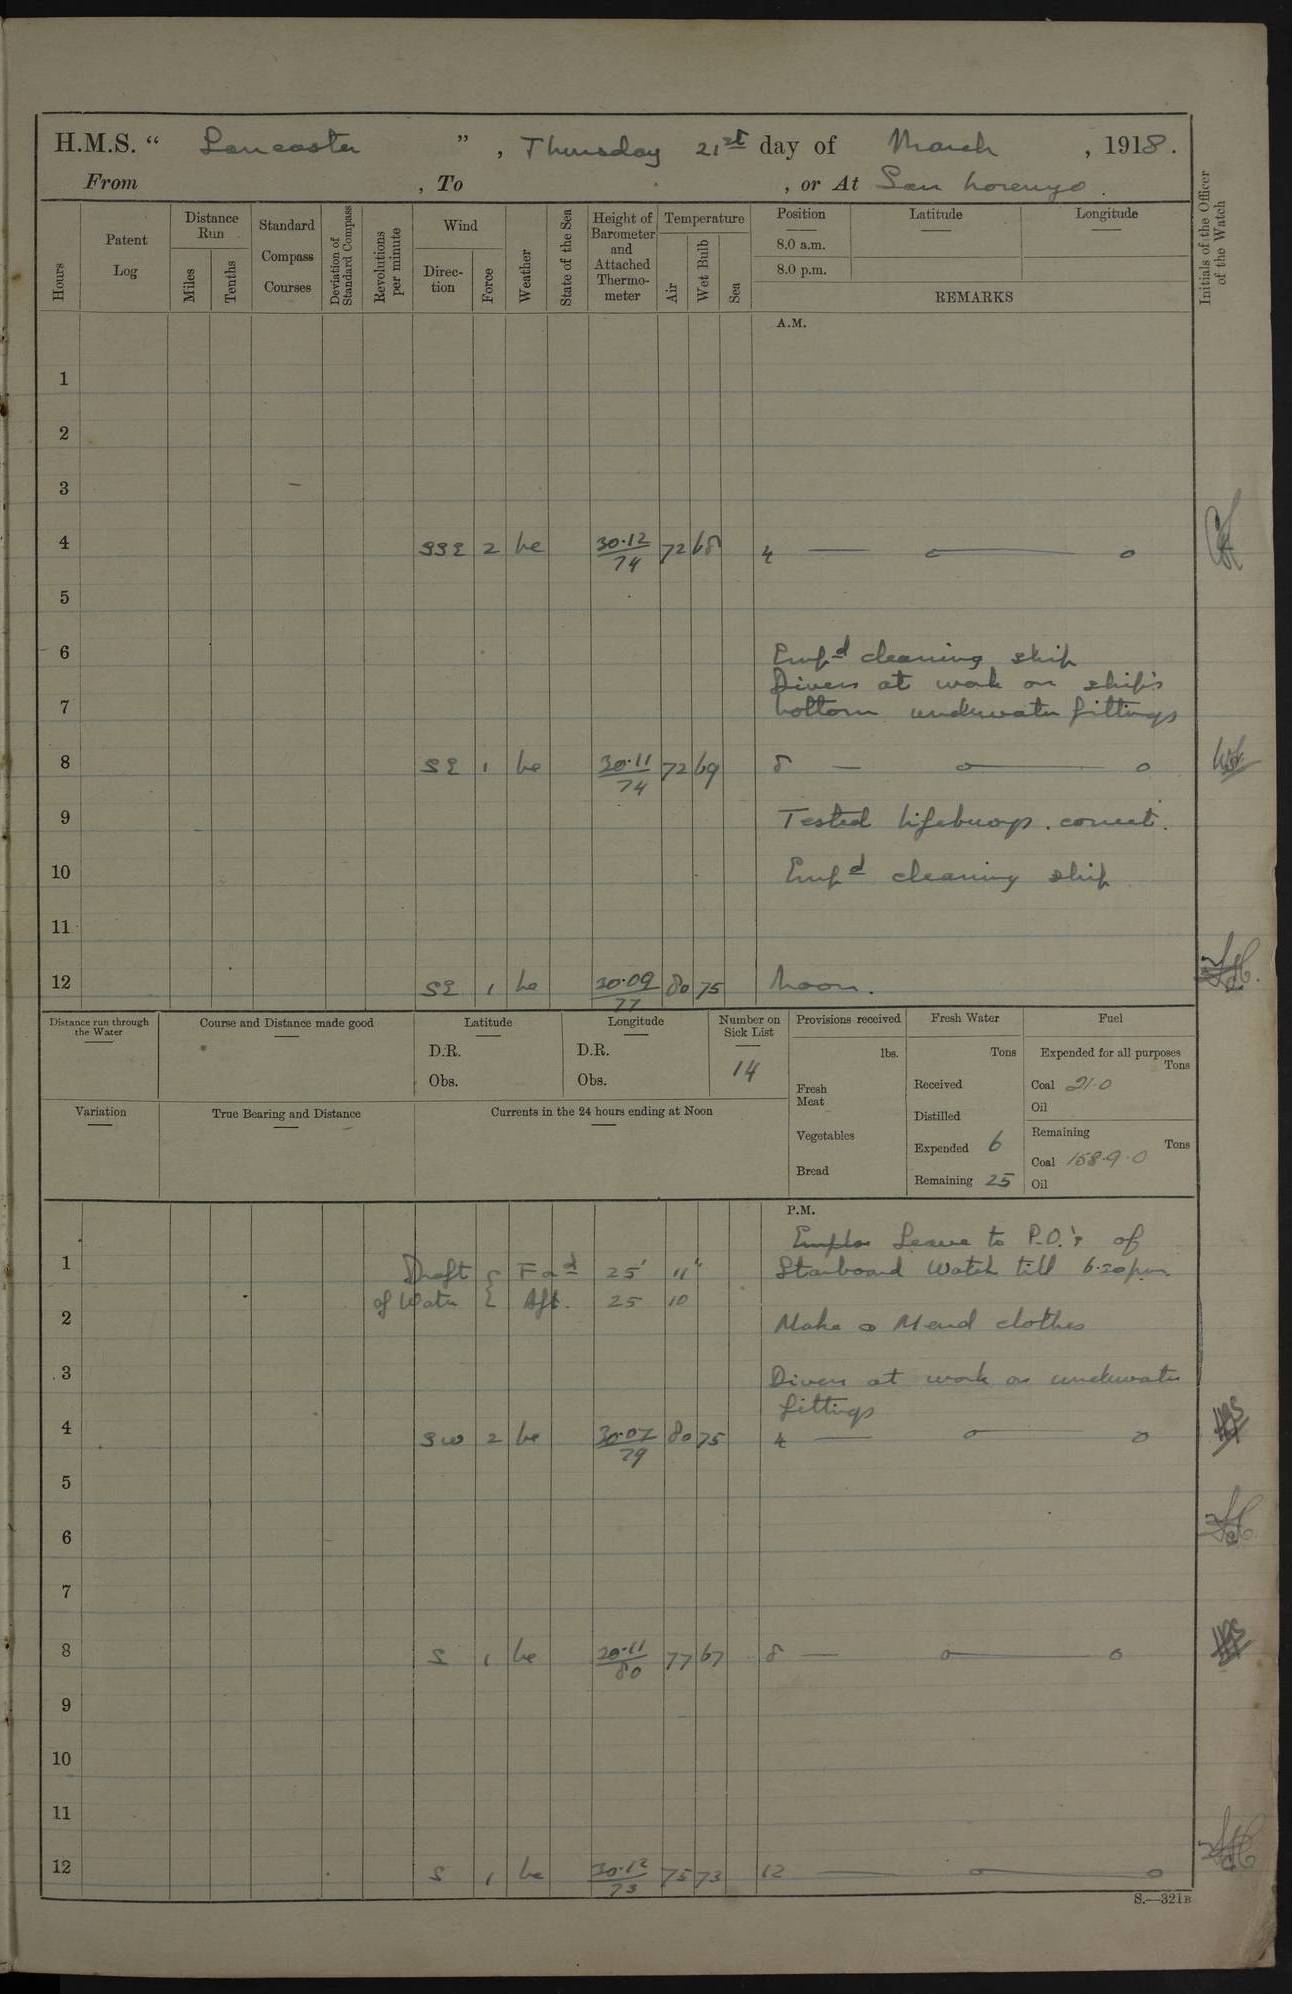 H.M.S. “ Lancaster ” , Thursday 21st day of March , 1918.
From , To , or At San Lorenzo.
Hours
Patent Log
Distance Run
Miles
Tenths
Standard Compass Courses
Deviation of Standard Compass
Revolutions per minute
Wind
Direc-tion
Force
Weather
State of the Sea
Height of Barometer and Attached Thermo-meter
Temperature
Air
Wet Bulb
Sea
Position
8.0 a.m.
8.0 p.m.
Latitude
Longitude
REMARKS
Initials of the Officer of the Watch
A.M.
1
2
3
4 SSE 2 bc 30·12 72 68 4
74
5
6 Empd cleaning ship
Divers at work on ship's
7 bottom underwater fittings
8 SE 1 bc 30·11 72 69 8
74
9 Tested lifebuoys. correct.
10 Empd cleaning ship
11
12 SE 1 bc 30·09 80 75 Noon.
77
Distance run through the Water
Course and Distance made good
Latitude
D.R.
Obs.
Longitude
D.R.
Obs.
Number on Sick List
14
Provisions received
lbs.
Fresh Meat
Vegetables
Bread
Fresh Water
Tons
Received
Distilled
Expended 6
Remaining 25
Fuel
Expended for all purposes
Tons
Coal 21·0
Oil
Remaining
Tons
Coal 158·9·0
Oil
Variation
True Bearing and Distance
Currents in the 24 hours ending at Noon
P.M.
Leave to P.O.'s of
1 Draft { Fod 25' 11" Starboard Watch till 6.30pm
of Water { Aft. 25 10
2 Make & Mend clothes
3 Divers at work on underwater
fittings
4 SW 2 bc 30·07 80 75 4
79
5
6
7
8 S 1 bc 30·11 77 67 8
80
9
10
11
12 S 1 bc 30·12 75 73 12
73
S.—321B